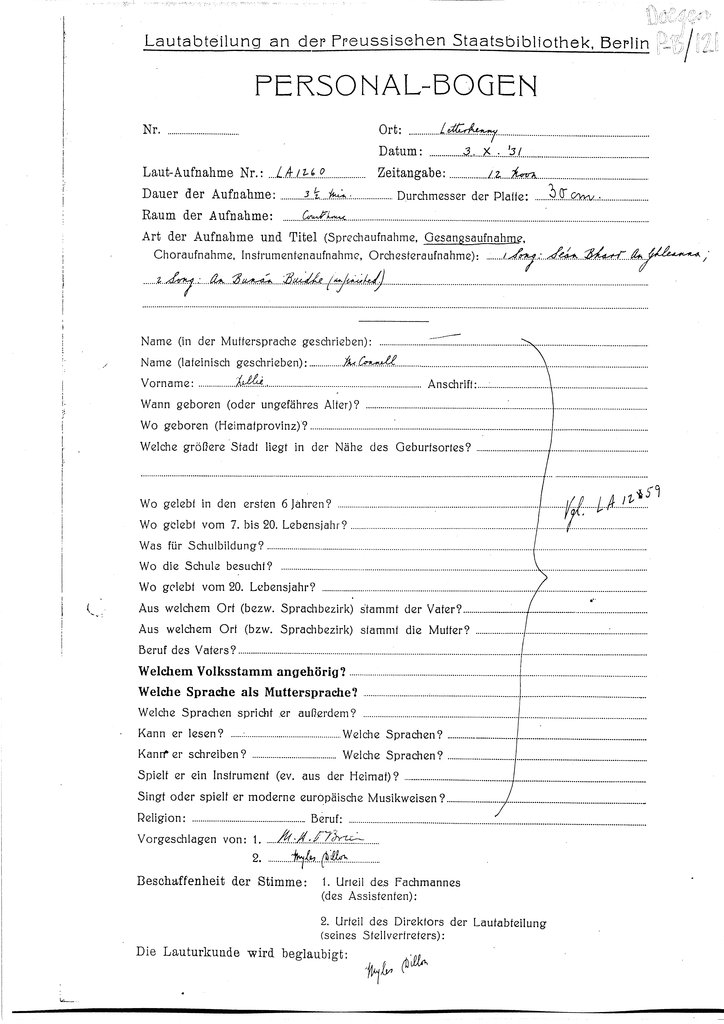 Doegen
Lautabteilung an der Preussischen Staatsbibliothek, Berlin P-B/121
PERSONAL-BOGEN
Nr. Ort: Letterkenny
Datum: 3. X. '31
Laut-Aufnahme Nr.: LA 1260 Zeitangabe: 12 Noon
Dauer der Aufnahme: 3½ min. Durchmesser der Platte: 30 cm.
Raum der Aufnahme: Courthouse
Art der Aufnahme und Titel (Sprechaufnahme, Gesangsaufnahme,
Choraufnahme, Instrumentenaufnahme, Orchesteraufnahme): 1 Song: Seán Bharr An Ghleanna;
2 Song: An Bunán Buidhe (unfinished)
Name (in der Muttersprache geschrieben): —
Name (lateinisch geschrieben): McConnell
Vorname: Lellie Anschrift:
Wann geboren (oder ungefähres Alter)?
Wo geboren (Heimatprovinz)?
Welche größere Stadt liegt in der Nähe des Geburtsortes?
Wo gelebt in den ersten 6 Jahren? Vgl. LA 1259
Wo gelebt vom 7. bis 20. Lebensjahr?
Was für Schulbildung?
Wo die Schule besucht?
Wo gelebt vom 20. Lebensjahr?
Aus welchem Ort (bezw. Sprachbezirk) stammt der Vater?
Aus welchem Ort (bezw. Sprachbezirk) stammt die Mutter?
Beruf des Vaters?
Welchem Volksstamm angehörig?
Welche Sprache als Muttersprache?
Welche Sprachen spricht er außerdem?
Kann er lesen? Welche Sprachen?
Kann er schreiben? Welche Sprachen?
Spielt er ein Instrument (ev. aus der Heimat)?
Singt oder spielt er moderne europäische Musikweisen?
Religion: Beruf:
Vorgeschlagen von: 1. M. A. O'Brien
2. Myles Dillon
Beschaffenheit der Stimme: 1. Urteil des Fachmannes
(des Assistenten):
2. Urteil des Direktors der Lautabteilung
(seines Stellvertreters):
Die Lauturkunde wird beglaubigt:
Myles Dillon